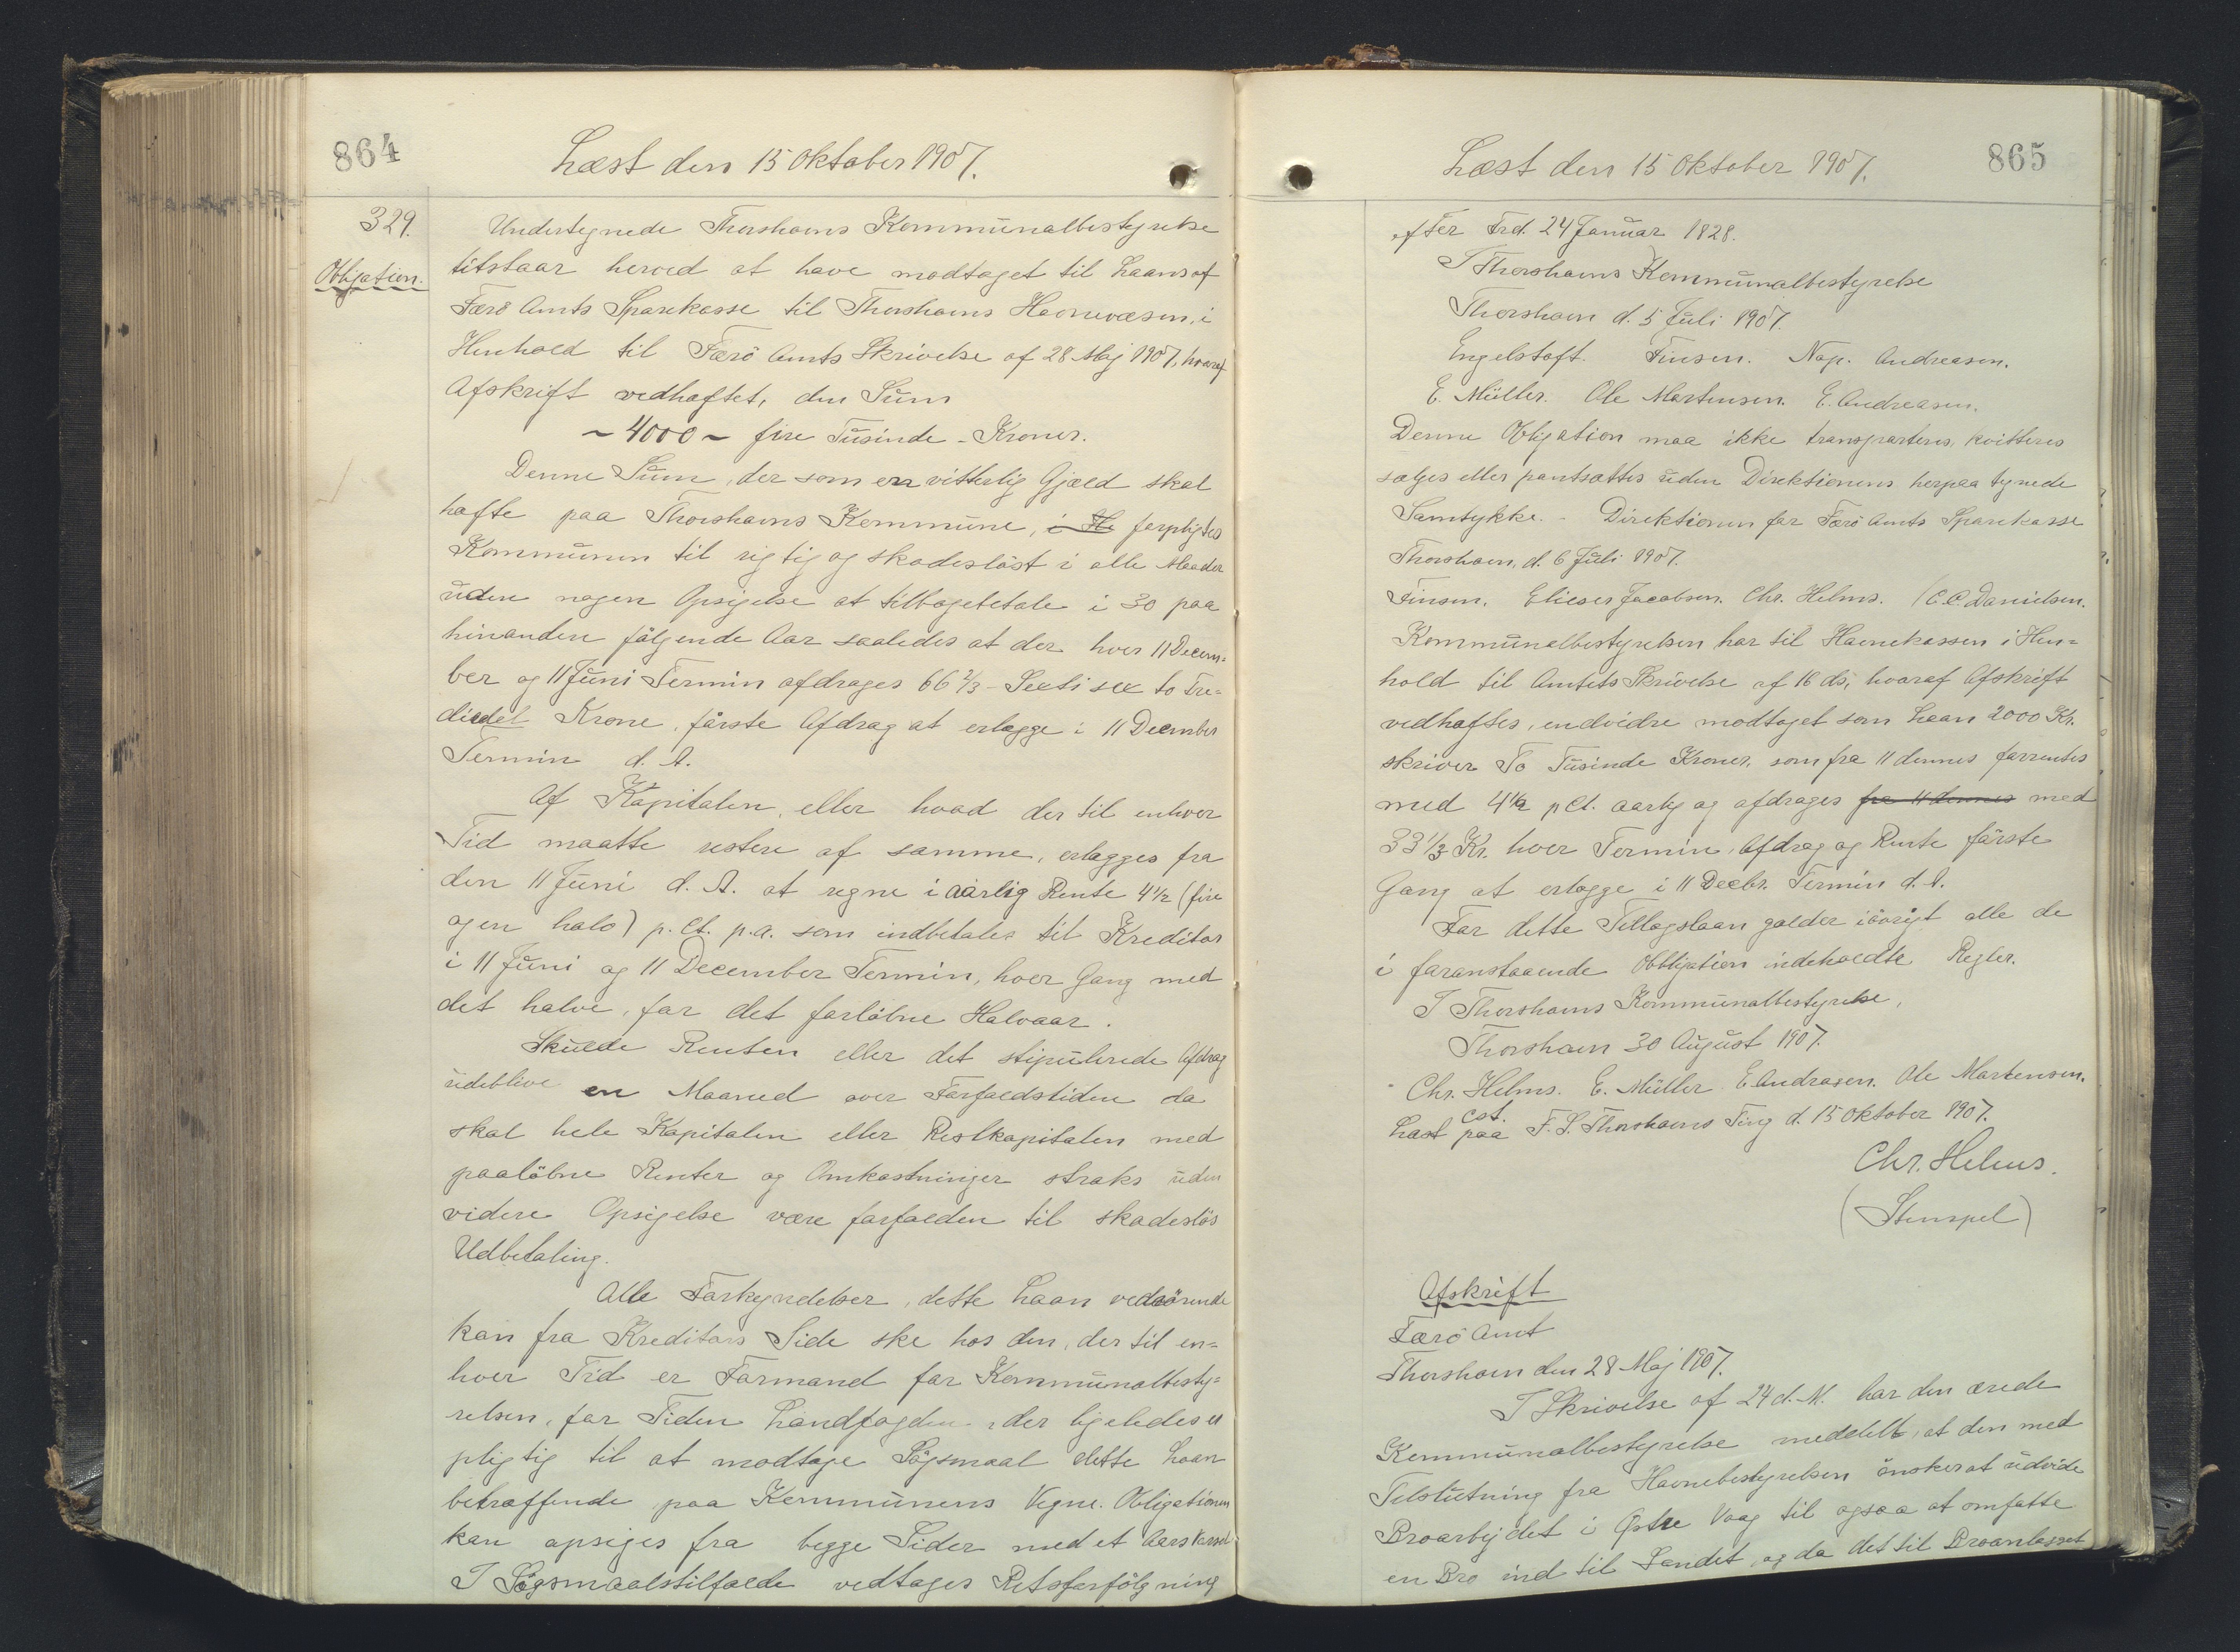 864
Læst den 15 Oktober 1907.
329.
Obligation.
Undertegnede Thorshavns Kommunalbestyrelse
tilstaar herved at have modtaget til Laans af
Færö Amts Sparekasse til Thorshavns Havnevæsen, i
Henhold til Færö Amts Skrivelse af 28 Maj 1907, hvoraf
Afskrift vedhæftet, den Sum
~ 4000 ~ fire Tusinde - Kroner.
Denne Sum, der som en vitterlig Gjæld skal
hæfte paa Thorshavns Kommune, i He forpligtes
Kommunen til rigtig og skadesløst i alle Maader
uden nogen Opsigelse at tilbagebetale i 30 paa
hinanden følgende Aar saaledes at der hver 11 Decem=
ber og 11 Juni Termin afdrages 66 2/3 - Sexti sex to Tre=
diedel Krone, første Afdrag at erlægge i 11 December
Termin d. A.
Af Kapitalen, eller hvad der til enhver
Tid maatte restere af samme, erlægges fra
den 11 Juni d. A. at regne i aarlig Rente 4 1/2 (fire
og en halv) p. Ct. p.a. som indbetales til Kreditor
i 11 Juni og 11 December Termin, hver Gang med
det halve, for det forløbne Halvaar.
Skulde Renten eller det stipulerede Afdrag
udeblive en Maaned over Forfaldstiden da
skal hele Kapitalen eller Restkapitalen med
paaløbne Renter og Omkostninger straks uden
videre Opsigelse være forfalden til skadesløs
Udbetaling.
Alle Forkyndelser, dette Laan vedrörende
kan fra Kreditors Side ske hos den, der til en=
hver Tid er Formand for Kommunalbesty=
relsen, for Tiden Landfogden, der ligeledes er
pligtig til at modtage Søgsmaal dette Laan
betræffende paa Kommunens Vegne. Obligationen
kan opsiges fra begge Sider med et Aars Varsel
I Søgsmaalstilfælde vedtages Retsforfølgning
865
Læst den 15 Oktober 1907.
efter Frd. 24 Januar 1828.
I Thorshavns Kommunalbestyrelse
Thorshavn d. 5 Juli 1907.
Engelstoft. Finsen. Nap. Andreasen.
E. Müller. Ole Mortensen. E. Andreasen.
Denne Obligation maa ikke transporteres, kvitteres
sælges eller pantsættes uden Direktionens herpaa tegnede
Samtykke. - Direktionen for Færö Amts Sparekasse
Thorshavn, d. 6 Juli 1907.
Finsen. Elieser Jacobsen. Chr. Helms. / C.C. Danielsen.
Kommunalbestyrelsen har til Havnekassen i Hen=
hold til Amtets Skrivelse af 16 ds, hvoraf Afskrift
vedhæftes, endvidre modtaget som Laan 2000 Kr.
skriver To Tusinde Kroner, som fra 11 dennes forrentes
med 4 1/2 pCt. aarlig og afdrages fra 11 dennes med
33 1/3 Kr. hver Termin, Afdrag og Rente første
Gang at erlægge i 11 Decbr. Termin d. A.
For dette Tillægslaan gælder iövrigt alle de
i foranstaaende Obligation indeholdte Regler.
I Thorshavns Kommunalbestyrelse,
Thorshavn 30 August 1907.
Chr. Helms. E. Müller E Andrasen. Ole Mortensen.
cst.
Læst paa F. S. Thorshavns Ting d. 15 Oktober 1907.
Chr. Helms.
(Stempel)
Afskrift
Færö Amt
Thorshavn den 28 Maj 1907.
I Skrivelse af 24 d. M. har den ærede
Kommunalbestyrelse meddelt, at den med
Tilslutning fra Havnebestyrelsen önsker at udvide
Broarbejdet i Østre Vaag til ogsaa at omfatte
en Bro ind til Landet, og da det til Broanlægget